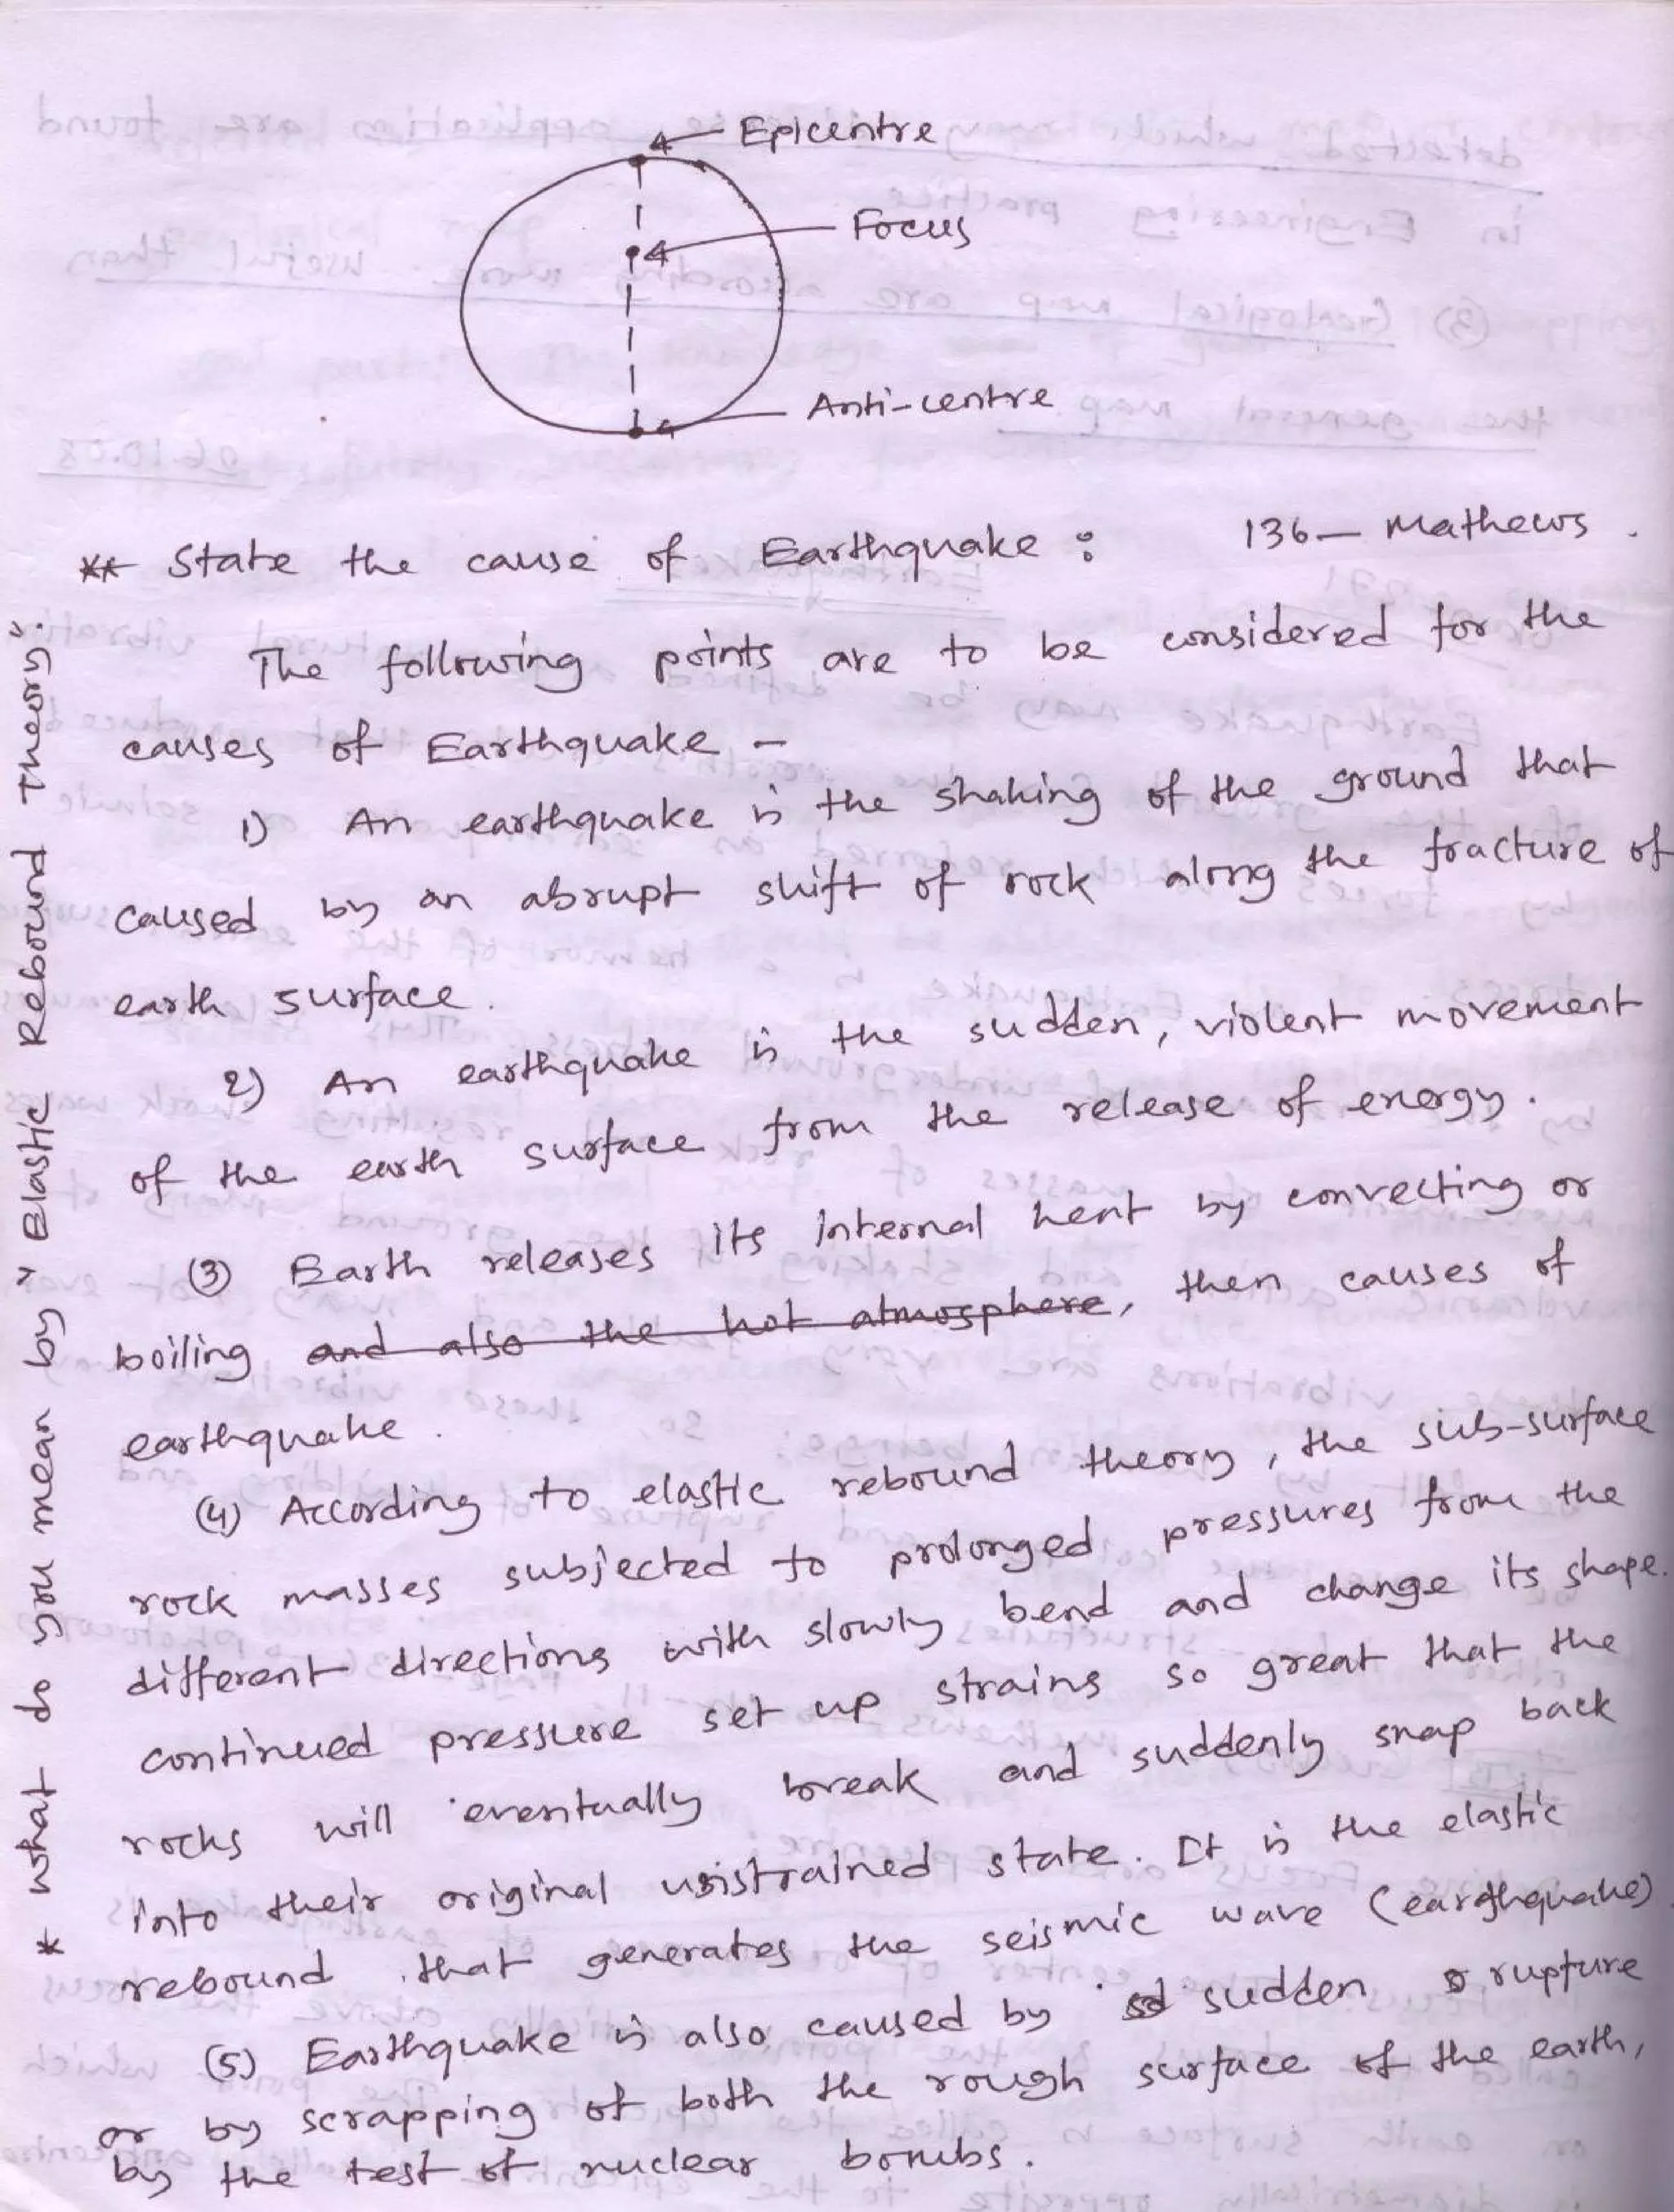 Epicentre
Focus
Anti-centre
** State the cause of Earthquake : 136 – Mathews .
The following points are to be considered for the
causes of Earthquake –
1) An earthquake is the shaking of the ground that
caused by an abrupt shift of rock along the fracture of
earth surface .
2) An earthquake is the sudden, violent movement
of the earth surface from the release of energy .
(3) Earth releases its internal heat by convecting or
boiling and also the hot atmosphere, then causes of
earthquake .
(4) According to elastic rebound theory , the sub-surface
rock masses subjected to prolonged pressures from the
different directions with slowly bend and change its shape.
continued pressure set up strains so great that the
rocks will eventually break and suddenly snap back
into their original unstrained state. It is the elastic
rebound that generates the seismic wave (earthquake)
(5) Earthquake is also caused by sudden rupture
or by scrapping of both the rough surface of the earth,
by the test of nuclear bombs .
* what do you mean by "Elastic Rebound Theory".